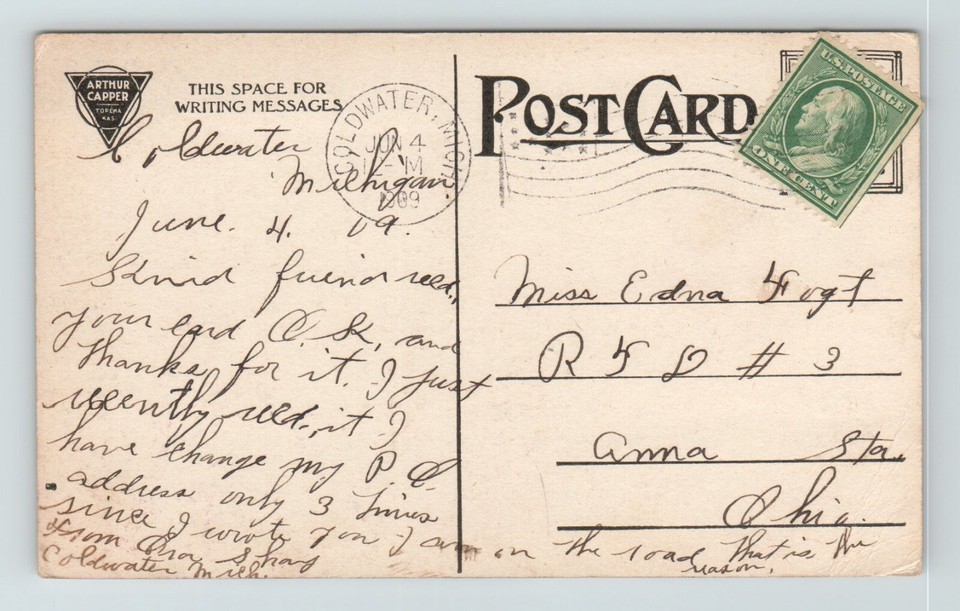 ARTHUR
CAPPER
TOPEKA
KAS.
THIS SPACE FOR
WRITING MESSAGES
POST CARD
U.S. POSTAGE
ONE CENT
COLDWATER, MICH.
JUN 4
1909
Coldwater
Michigan
June. 4. 09.
Kind friend recd.,
your card O.K., and
thanks for it. I just
recently recd., it I
have change my P.O.
address only 3 times
since I wrote you I am on the road that is the
reason.
from
Coldwater Mich.
Miss Edna Fogt
R F D # 3
Anna Sta.
Ohio.